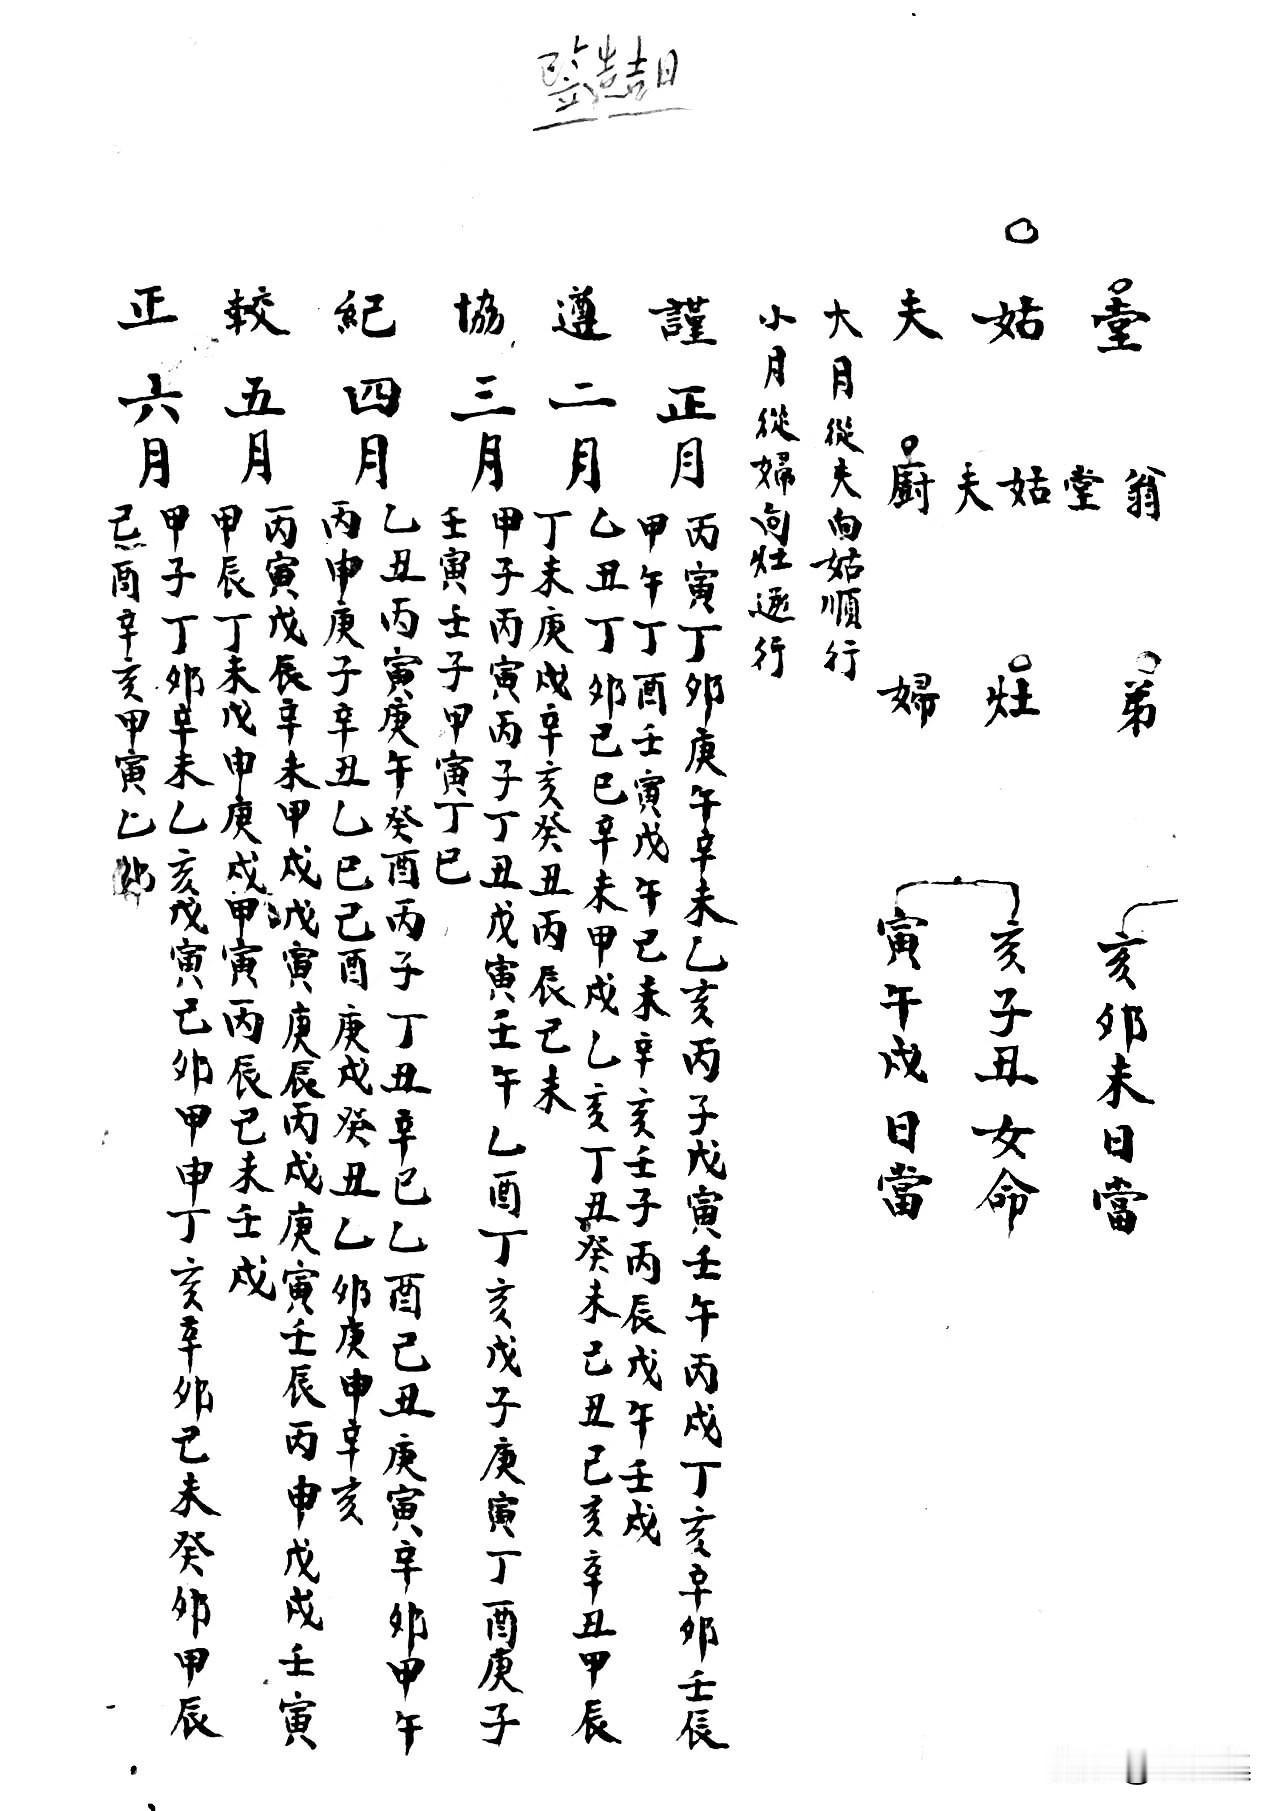 堂 弟 亥卯未日當
翁
堂
姑 灶 亥子丑女命
姑
夫
夫 廚 婦 寅午戌日當
大月從夫向姑順行
小月從婦向灶逆行
謹 正月 丙寅丁卯庚午辛未乙亥丙子戊寅壬午丙戌丁亥辛卯壬辰
甲午丁酉壬寅戊午己未辛亥壬子丙辰戊午壬戌
遵 二月 乙丑丁卯己巳辛未甲戌乙亥丁丑癸未己丑己亥辛丑甲辰
丁未庚戌辛亥癸丑丙辰己未
協 三月 甲子丙寅丙子丁丑戊寅壬午乙酉丁亥戊子庚寅丁酉庚子
壬寅壬子甲寅丁巳
紀 四月 乙丑丙寅庚午癸酉丙子丁丑辛巳乙酉己丑庚寅辛卯甲午
丙申庚子辛丑乙巳己酉庚戌癸丑乙卯庚申辛亥
較 五月 丙寅戊辰辛未甲戌戊寅庚辰丙戌庚寅壬辰丙申戊戌壬寅
甲辰丁未戊申庚戌甲寅丙辰己未壬戌
正 六月 甲子丁卯辛未乙亥戊寅己卯甲申丁亥辛卯己未癸卯甲辰
己酉辛亥甲寅乙卯